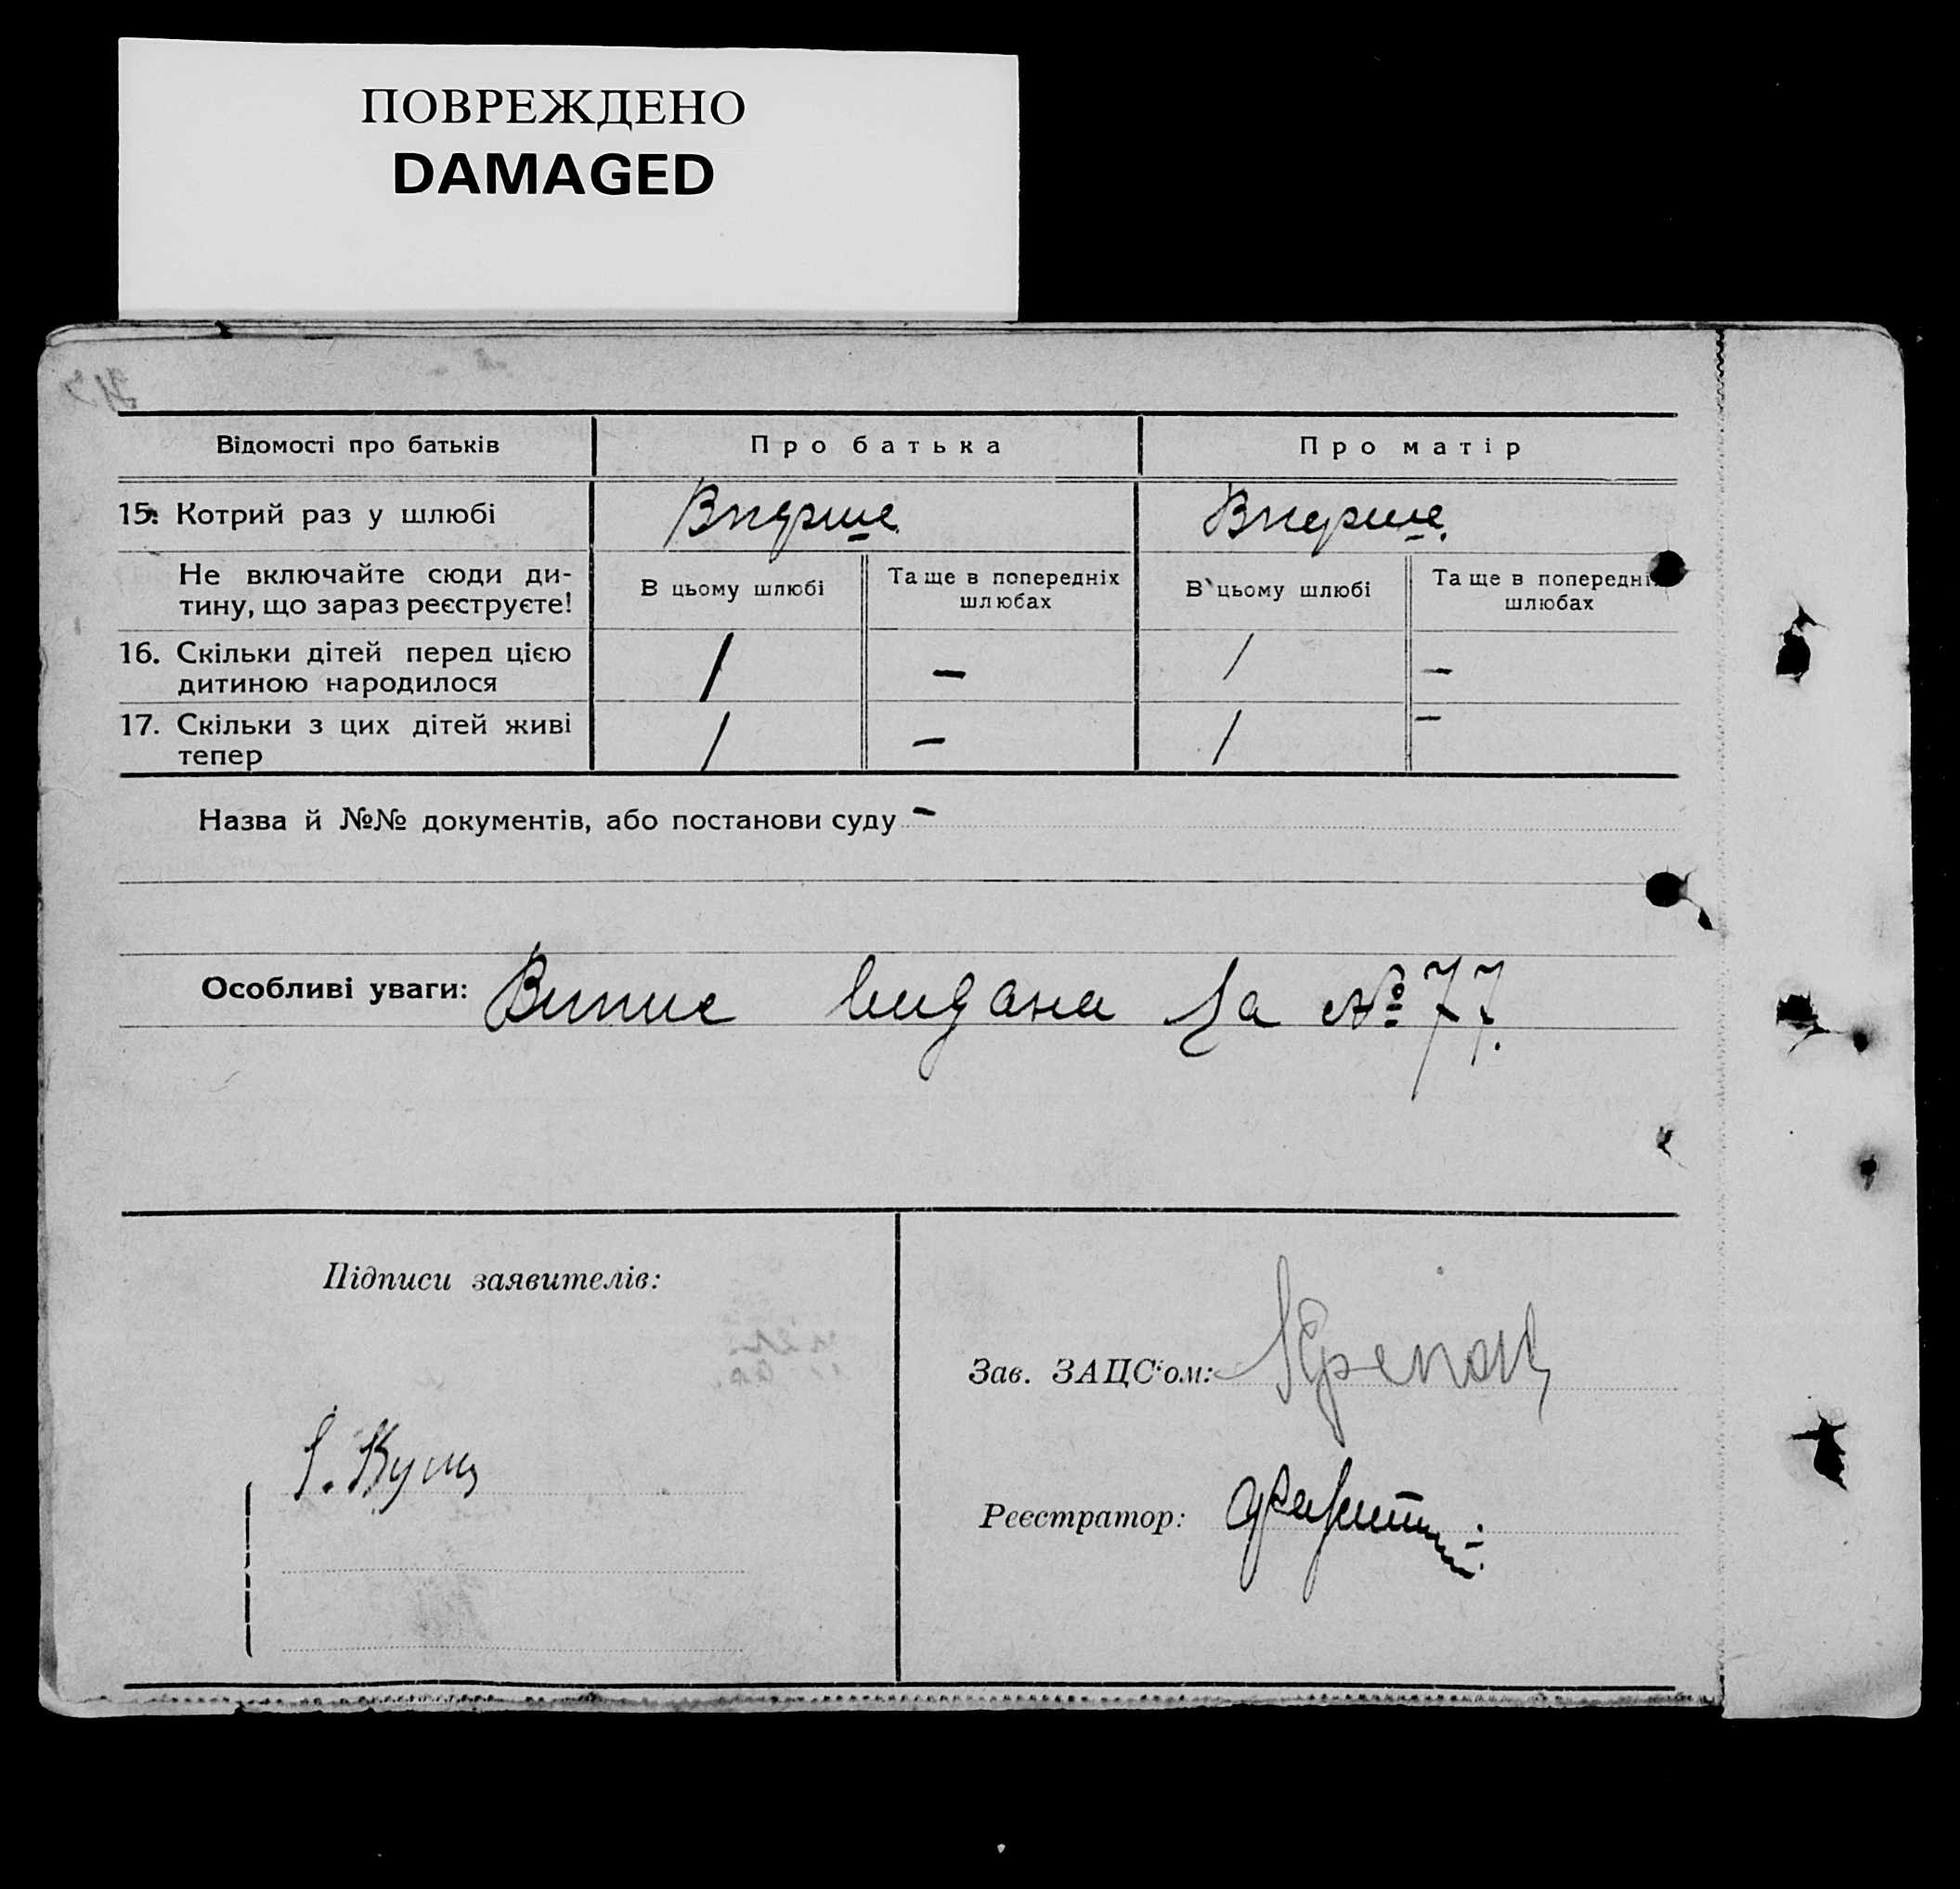 ПОВРЕЖДЕНО
DAMAGED
Відомості про батьків
Про батька
Про матір
15. Котрий раз у шлюбі
Вперше
Вперше.
Не включайте сюди ди-
тину, що зараз реєструєте!
В цьому шлюбі
Та ще в попередніх
шлюбах
В цьому шлюбі
Та ще в попередні
шлюбах
16. Скільки дітей перед цією
дитиною народилося
1
—
1
—
17. Скільки з цих дітей живі
тепер
1
—
1
—
Назва й №№ документів, або постанови суду —
Особливі уваги: Випис видана за № 77.
Підписи заявителів:
Зав. ЗАЦС'ом:
Реєстратор: